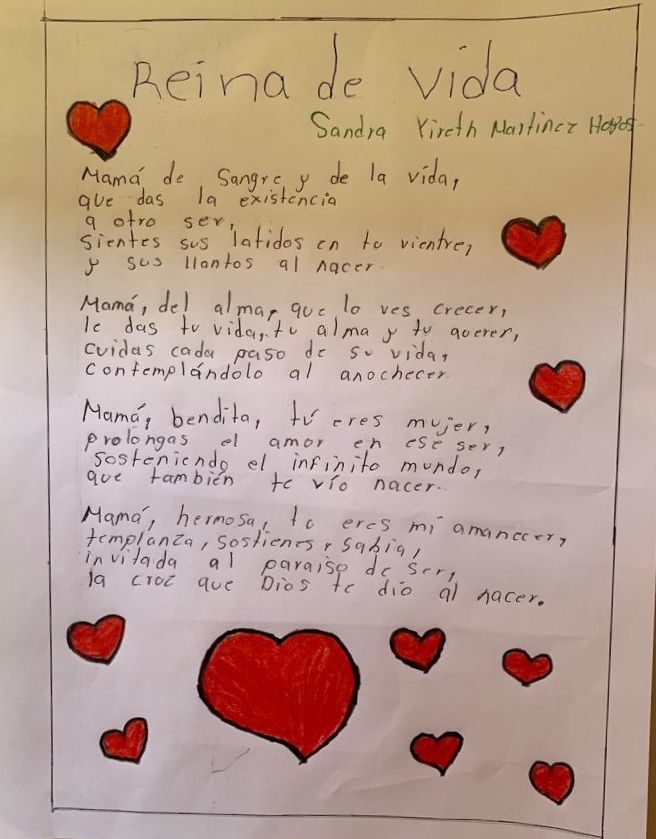 Reina de vida
Sandra Yireth Martinez Hoyos
Mamá de Sangre y de la vida,
que das la existencia
a otro ser,
sientes sus latidos en tu vientre,
y sus llantos al nacer.
Mamá, del alma, que lo ves crecer,
le das tu vida, tu alma y tu querer,
cuidas cada paso de su vida,
contemplándolo al anochecer.
Mamá, bendita, tú eres mujer,
prolongas el amor en ese ser,
sosteniendo el infinito mundo,
que también te vío nacer.
Mamá, hermosa, tu eres mi amanecer,
templanza, sostienes y sabia,
invitada al paraiso de ser,
la croz que Dios te dio al nacer.